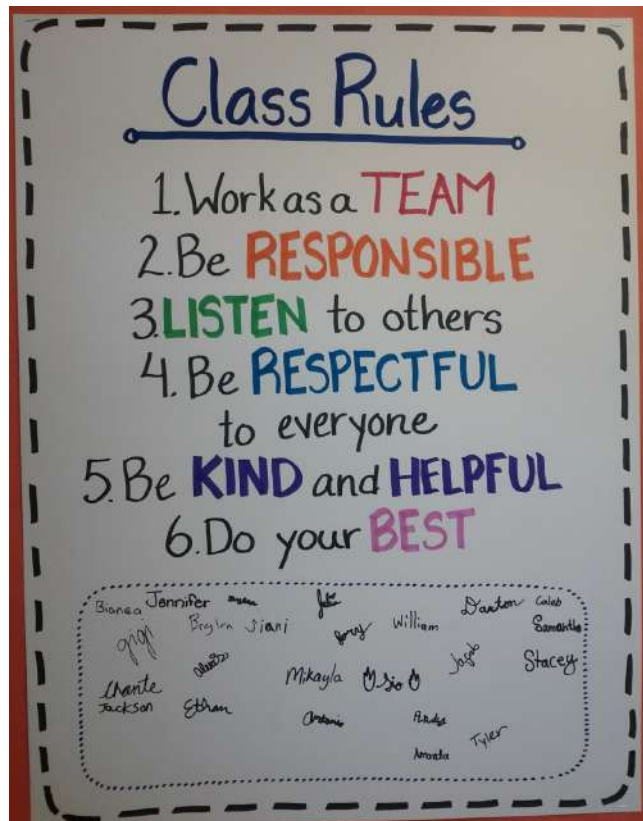 Class Rules
1. Work as a TEAM
2. Be RESPONSIBLE
3. LISTEN to others
4. Be RESPECTFUL
to everyone
5. Be KIND and HELPFUL
6. Do your BEST
Bianca Jennifer Daxton Caleb
gigi Jiani William Samantha
Mikayla Jacob Stacey
Chante
Jackson Ethan Antonio
Amanda Tyler